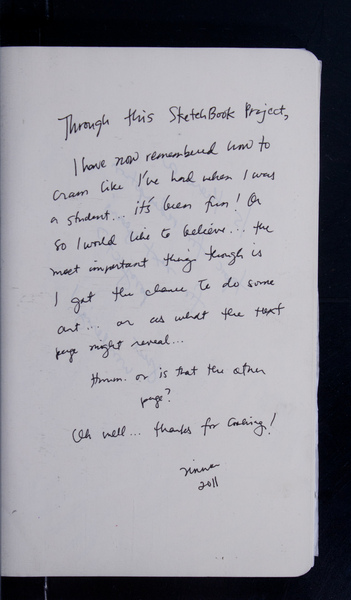 Through this SketchBook Project,
I have now remembered how to
cram like I've had when I was
a student... it's been fun! Or
so I would like to believe... the
most important thing though is
I got the chance to do some
art... or as what the next
page might reveal...
Hmmm. or is that the other
page?
Oh well... thanks for looking!
2011